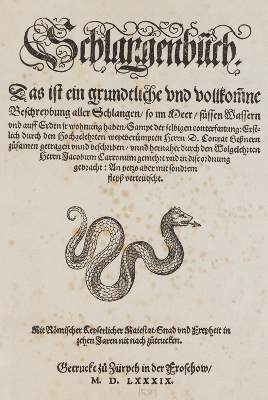 Schlangenbůch.
Das ist ein grundtliche vnd vollkom̃ne
Beschreybung aller Schlangen / so im Meer / süssen Wassern
vnd auff Erden jr wohnung haben / Sampt der selbigen conterfaitung: Erst-
lich durch den Hochgelehrten weytberümpten Herrn D. Conrat Geßnern
zůsamen getragen vnnd beschriben / vnnd hernaher durch den Wolgelehrten
Herrn Jacobum Carronum gemehrt vnd in dise ordnung
gebracht: An yetzo aber mit sondrem
fleyß verteütscht.
Mit Römischer Keyserlicher Maiestat / Gnad vnd Freyheit in
zehen Jaren nit nach zůtrucken.
Getruckt zů Zürych in der Froschow /
M. D. LXXXIX.